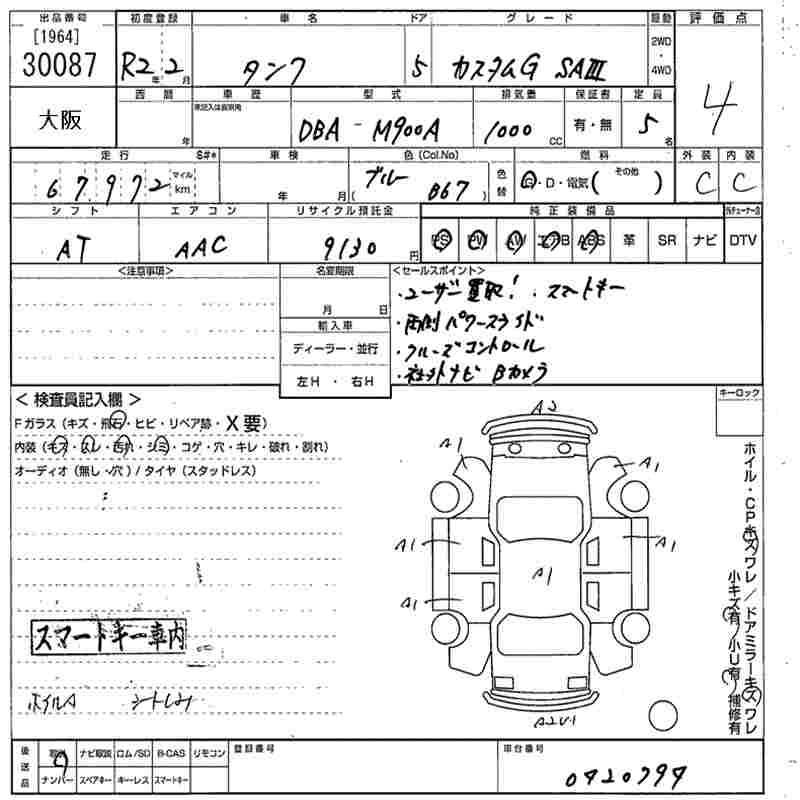 出品番号 初度登録 車名 ドア グレード 駆動 評価点
[1964]
30087 R2年 2月 タンク 5 カスタムG SAIII 2WD・4WD 4
大阪 西暦 年 車歴 型式 排気量 保証書 定員
未記入は自家用
DBA - M900A 1000 CC 有・無 5名
走行 S#* 車検 色(Col.No) 燃料 外装 内装
67972 マイル km 年 月 ブルー (B67) 色替 G・D・電気(その他 ) C C
シフト エアコン リサイクル預託金 純正装備品
AT AAC 9130円 PS PW AW エアB ABS 革 SR ナビ DTV
<注意事項> 名変期限 <セールスポイント>
月 日
・ユーザー買取! ・スマートキー
輸入車
・両側パワースライド
ディーラー・並行
・クルーズコントロール
左H・右H
・社外ナビ Bカメラ
<検査員記入欄> キーロック
Fガラス(キズ・飛石・ヒビ・リペア跡・X要)
内装(キズ・スレ・汚れ・シミ・コゲ・穴・キレ・破れ・割れ)
オーディオ(無し・穴)/タイヤ(スタッドレス)
A2
A1 A1
A1 A1
A1
A1
A2U1
ホイル・CPキズワレ/ドアミラーキズワレ
小キズ有/小U有/補修有
スマートキー車内
ホイルA シートしみ
後送品 取説 ナビ取説 ロム/SD B-CAS リモコン 登録番号 車台番号
ナンバー スペアキー キーレス スマートキー 0420794